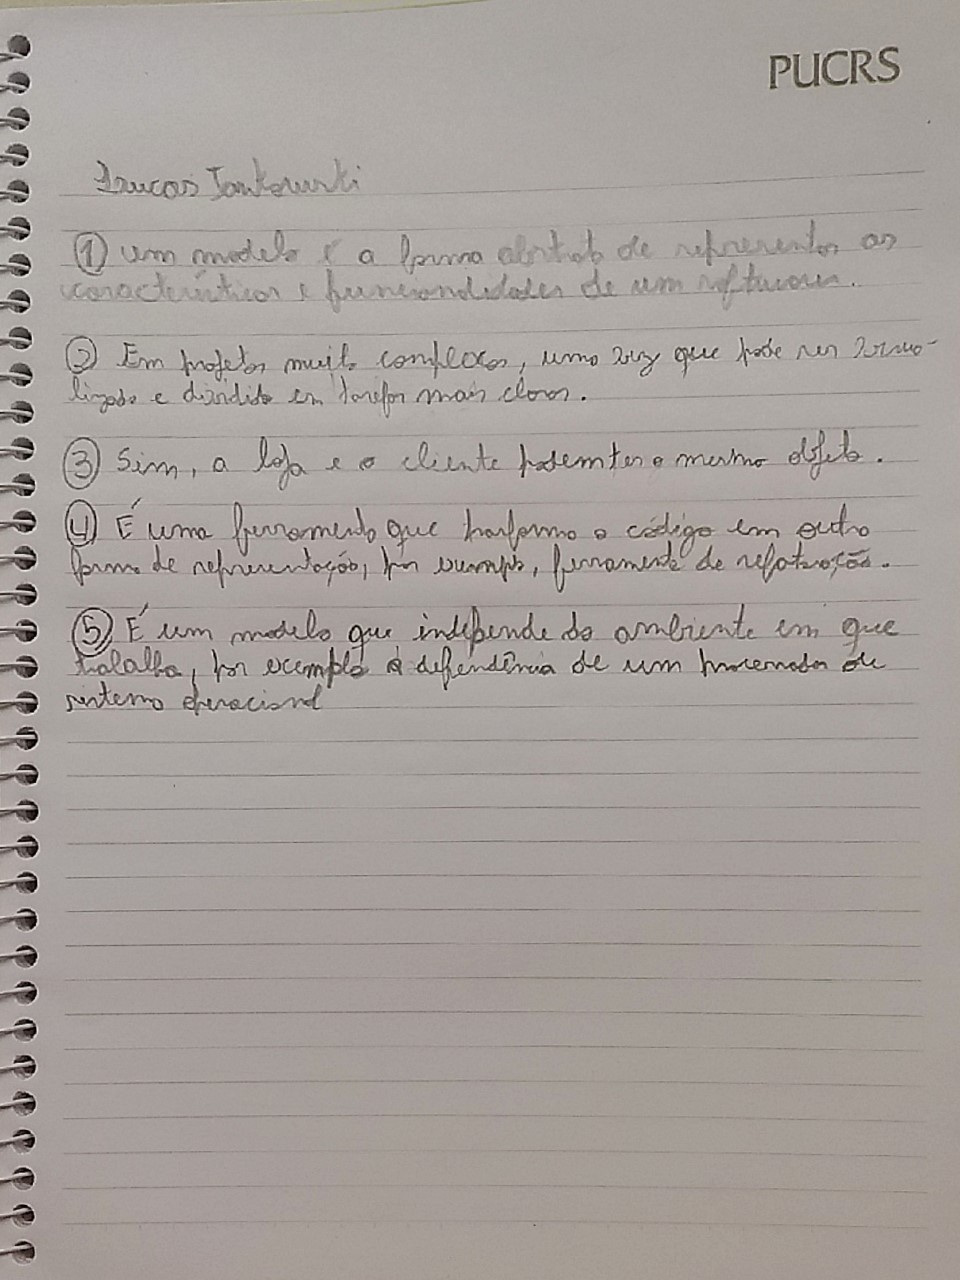 PUCRS
Lucas Jankowski
① um modelo é a forma abstrata de representar as
características e funcionalidades de um software.
② Em projetos muito complexos, uma vez que pode ser visua-
lizado e dividido em tarefas mais claras.
③ Sim, a loja e o cliente podem ter o mesmo objeto.
④ É uma ferramenta que transforma o código em outra
forma de representação, por exemplo, ferramenta de refatoração.
⑤ É um modelo que independe do ambiente em que
trabalha, por exemplo a dependência de um processador ou
sistema operacional